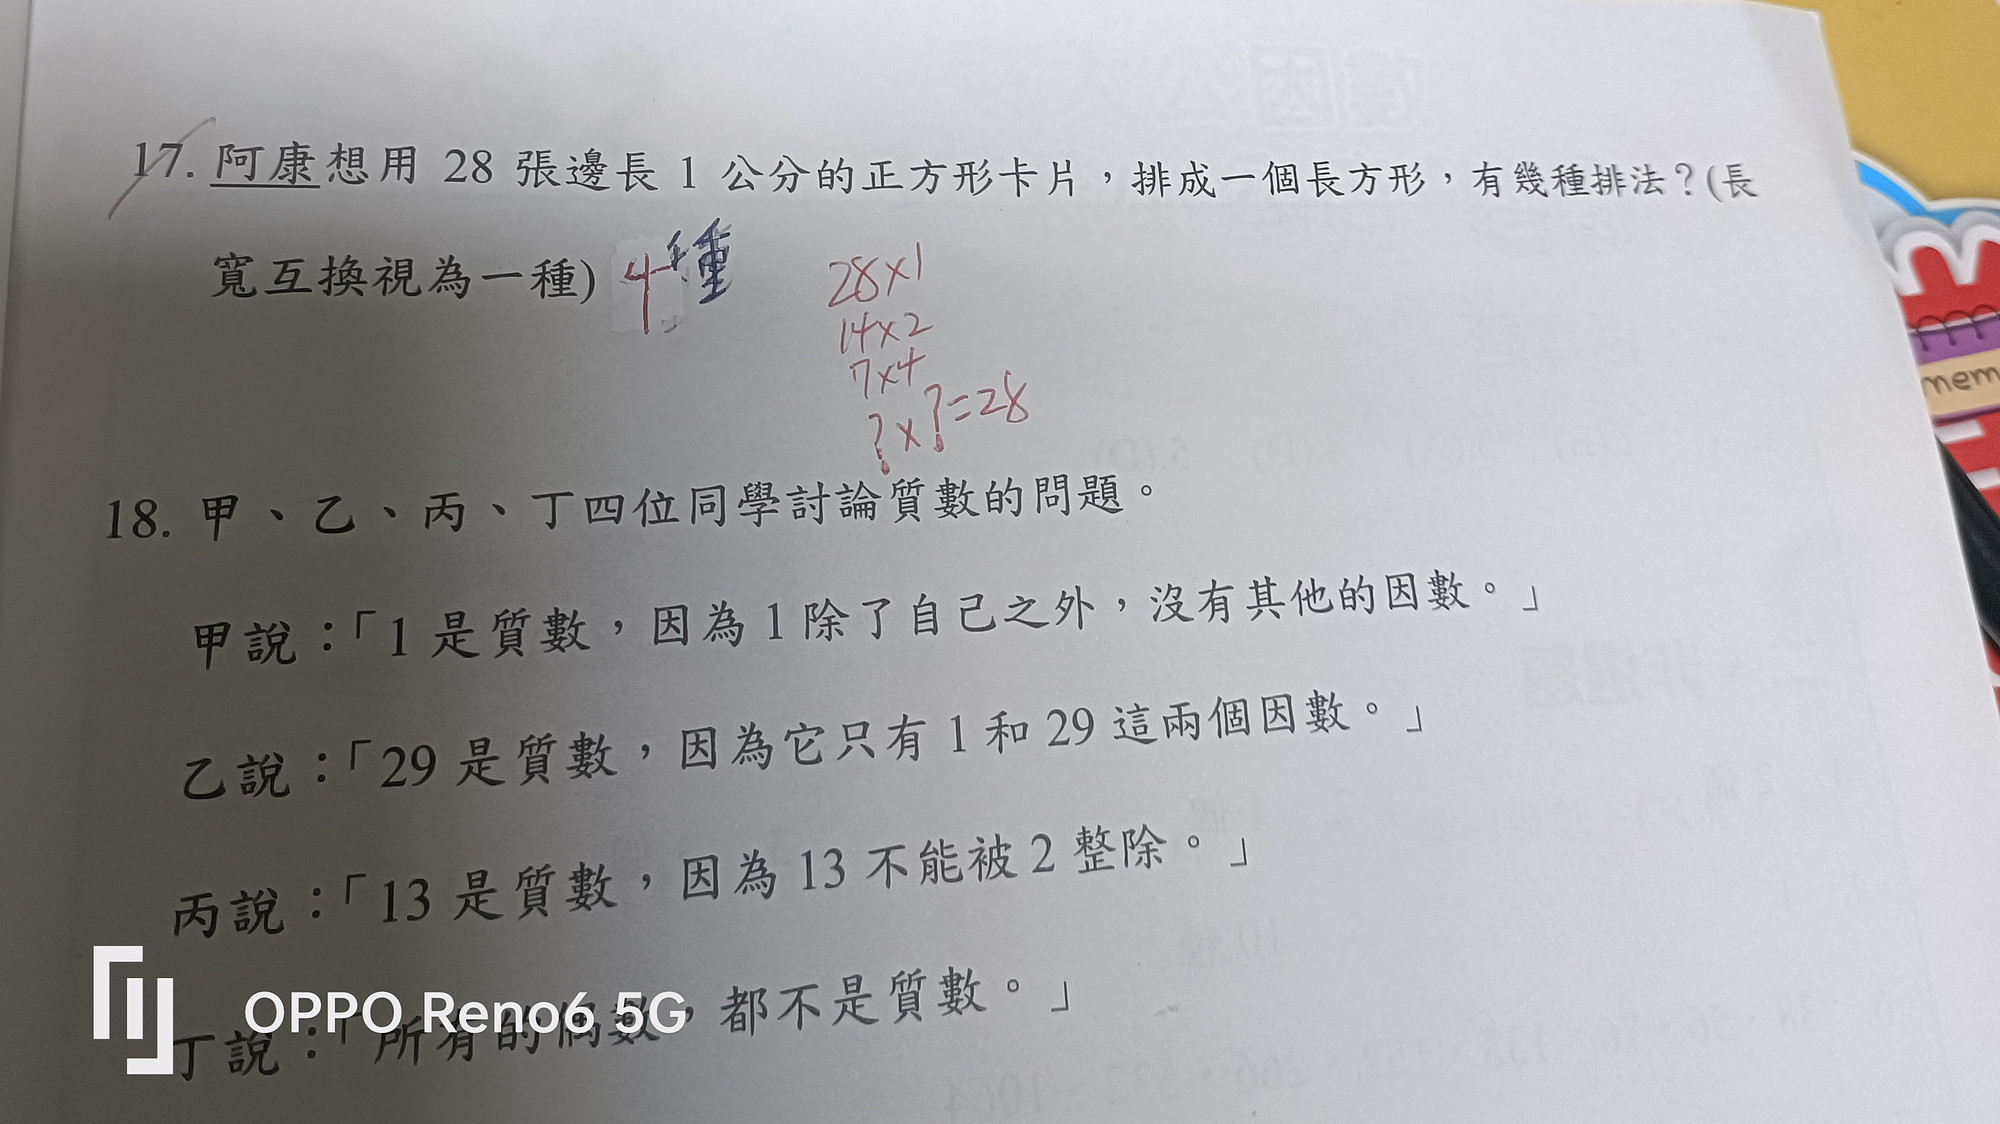 17. 阿康想用 28 張邊長 1 公分的正方形卡片，排成一個長方形，有幾種排法？(長
寬互換視為一種) 4種
28×1
14×2
7×4
?×?=28
18. 甲、乙、丙、丁四位同學討論質數的問題。
甲說：「1 是質數，因為 1 除了自己之外，沒有其他的因數。」
乙說：「29 是質數，因為它只有 1 和 29 這兩個因數。」
丙說：「13 是質數，因為 13 不能被 2 整除。」
丁說：「所有的偶數，都不是質數。」
OPPO Reno6 5G
mem